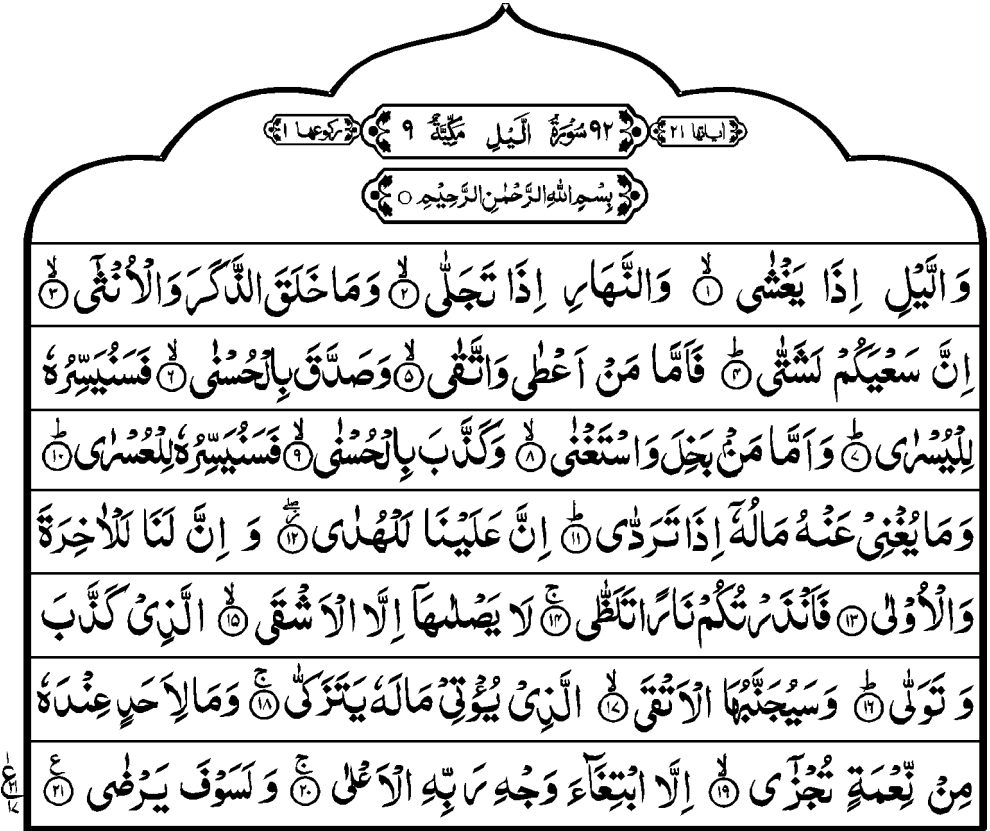 رکوعها ١ ٩٢ سُوْرَةُ الَّيْلِ مَكِّيَّةٌ ٩ اٰیاتها ٢١
بِسْمِ اللّٰهِ الرَّحْمٰنِ الرَّحِيْمِ ○
وَالَّيْلِ اِذَا يَغْشٰى ۙ﴿١﴾ وَالنَّهَارِ اِذَا تَجَلّٰى ۙ﴿٢﴾ وَمَا خَلَقَ الذَّكَرَ وَالْاُنْثٰٓى ۙ﴿٣﴾
اِنَّ سَعْيَكُمْ لَشَتّٰى ؕ﴿٤﴾ فَاَمَّا مَنْ اَعْطٰى وَاتَّقٰى ۙ﴿٥﴾ وَصَدَّقَ بِالْحُسْنٰى ۙ﴿٦﴾ فَسَنُيَسِّرُهٗ
لِلْيُسْرٰى ؕ﴿٧﴾ وَاَمَّا مَنْۢ بَخِلَ وَاسْتَغْنٰى ۙ﴿٨﴾ وَكَذَّبَ بِالْحُسْنٰى ۙ﴿٩﴾ فَسَنُيَسِّرُهٗ لِلْعُسْرٰى ؕ﴿١٠﴾
وَمَا يُغْنِىْ عَنْهُ مَالُهٗۤ اِذَا تَرَدّٰى ؕ﴿١١﴾ اِنَّ عَلَيْنَا لَلْهُدٰى ۖ﴿١٢﴾ وَ اِنَّ لَنَا لَلْاٰخِرَةَ
وَالْاُوْلٰى ﴿١٣﴾ فَاَنْذَرْتُكُمْ نَارًا تَلَظّٰى ۚ﴿١٤﴾ لَا يَصْلٰىهَاۤ اِلَّا الْاَشْقَى ۙ﴿١٥﴾ الَّذِىْ كَذَّبَ
وَ تَوَلّٰى ؕ﴿١٦﴾ وَسَيُجَنَّبُهَا الْاَتْقَى ۙ﴿١٧﴾ الَّذِىْ يُؤْتِىْ مَالَهٗ يَتَزَكّٰى ۚ﴿١٨﴾ وَمَا لِاَحَدٍ عِنْدَهٗ
مِنْ نِّعْمَةٍ تُجْزٰٓى ۙ﴿١٩﴾ اِلَّا ابْتِغَآءَ وَجْهِ رَبِّهِ الْاَعْلٰى ۚ﴿٢٠﴾ وَ لَسَوْفَ يَرْضٰى ﴿٢١﴾ ع
ع ٢١ ١٧